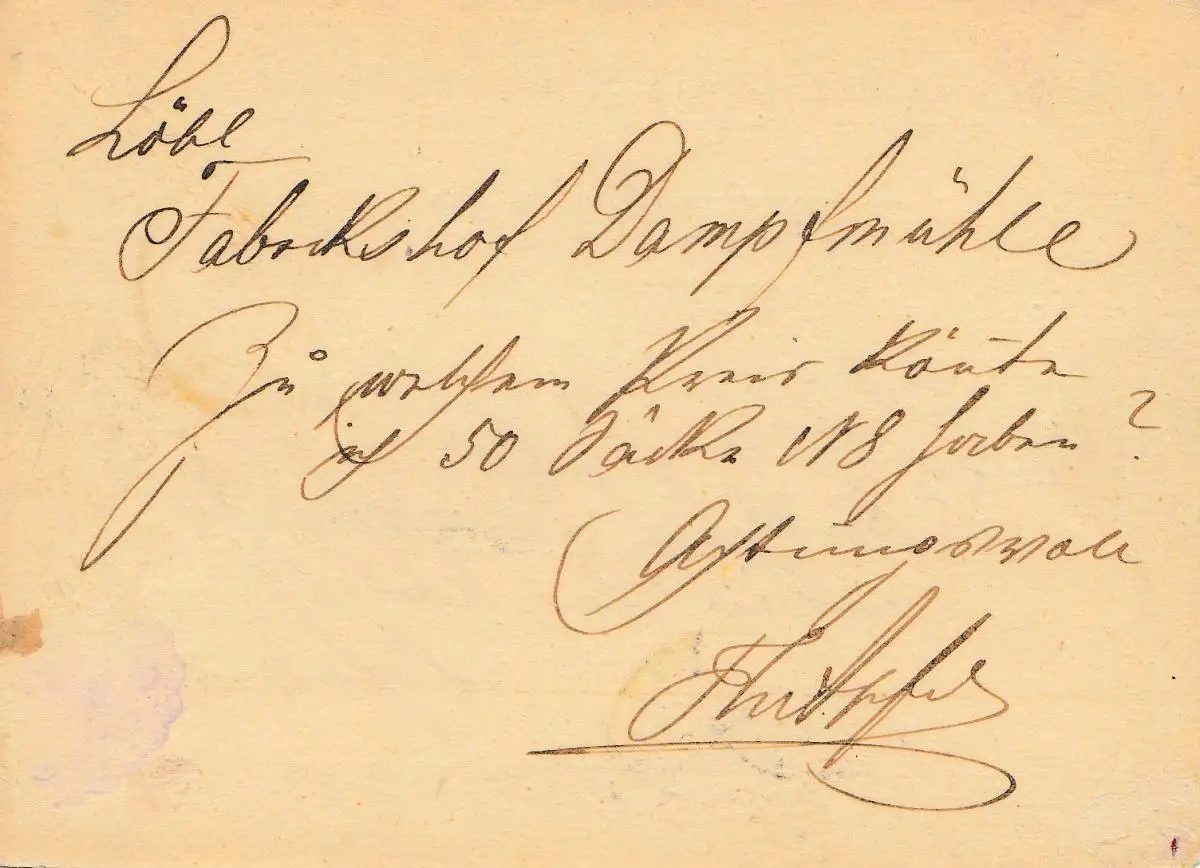 Löbl
Fabrikshof Dampfmühle
Zu welchem Kreis könte
ich 50 Säcke N8 haben?
Achtungsvoll